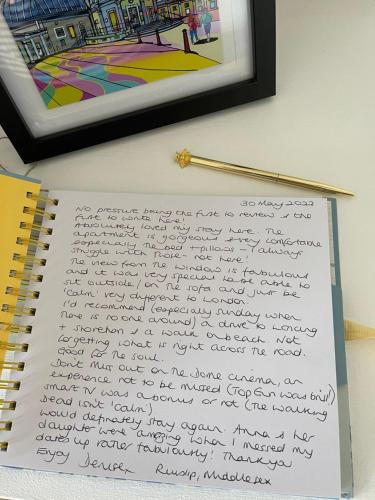 30 May 2022
No pressure being the first to review & the
first to write here!
Absolutely loved my stay here. The
apartment is gorgeous & very comfortable
especially the bed + pillows - I always
struggle with those - not here!
The view from the window is fabulous
and it was very special to be able to
sit outside / on the sofa and just be
'calm' very different to London.
I'd recommend (especially sunday when
there is no one around) a drive to Lancing
+ shoreham & a walk on beach. Not
forgetting what is right across the road.
Good for the soul.
Don't miss out on the Dome cinema, an
experience not to be missed (Top Gun was brill)
smart TV was a bonus or not (The walking
Dead isn't 'calm')
would definately stay again. Anna & her
daughter were amazing when I messed my
dates up rather fabulously! Thank you
Enjoy Denise x Ruislip, Middlesex